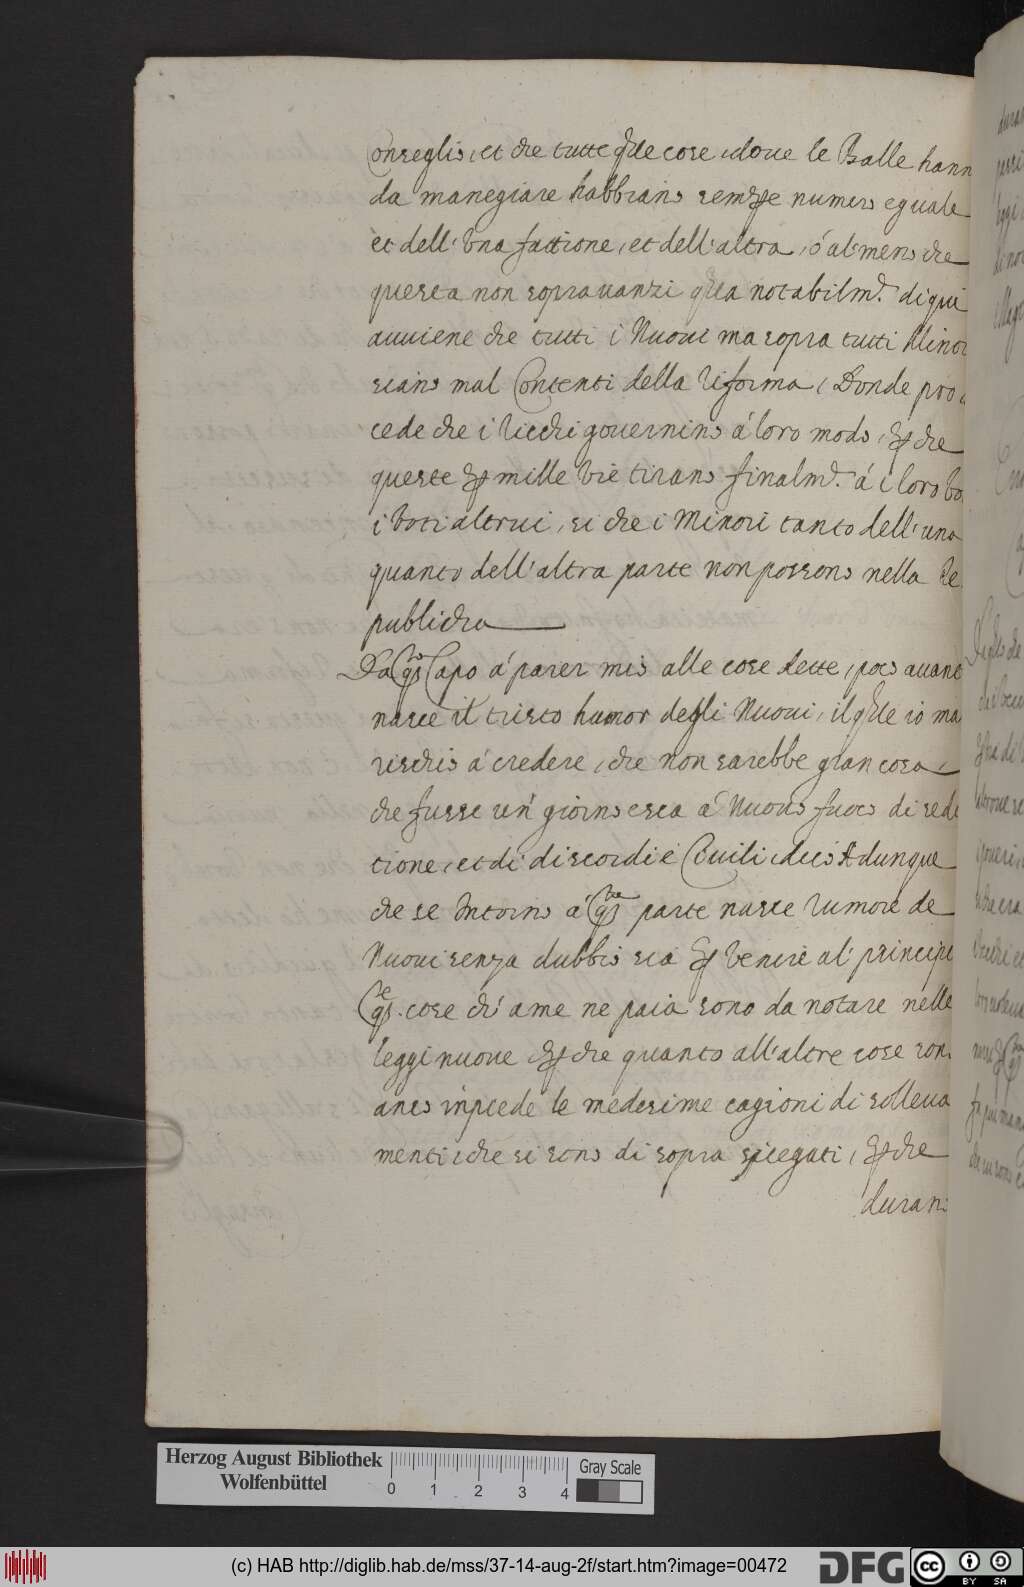 Conseglio, et che tutte q̃lle cose, doue le Balle hann
da manegiare habbiano sempre numero eguale
et dell' vna fattione, et dell'altra, ó al'meno che
questa non soprauanzi q̃lla notabilm.te di qui
auuiene che tutti i Nuoui ma sopra tutti Minori
siano mal Contenti della riforma, Donde pro
cede che i ricchi gouernino á loro modo, et che
queste per mille vie tirano finalm.te á i loro vo
i voti altrui, si che i Minori tanto dell' una
quanto dell'altra parte non possono nella Re
publicha
Da q̃sto Capo á parer mio alle cose dette, poco auant
nasce il tristo humor degli Nuoui, il q̃le io ma
rischio á credere, che non sarebbe gran cosa,
che fusse un' giorno esca á Nuouo fuoco di sedi
tione, et di discordie Ciuili, dico Adunque
che se Intorno á q̃sta parte nasce rumore de
Nuoui senza dubbio sia per venire al' principe
q̃ste cose ch' a me ne paia sono da notare nelle
leggi nuoue et che quanto all'altre cose son
anco inpiede le medesime cagioni di solleua
menti, che si sono di sopra spiegati, et che
duran
Herzog August Bibliothek
Wolfenbüttel
0 1 2 3 4
Gray Scale
(c) HAB http://diglib.hab.de/mss/37-14-aug-2f/start.htm?image=00472
DFG
cc BY SA